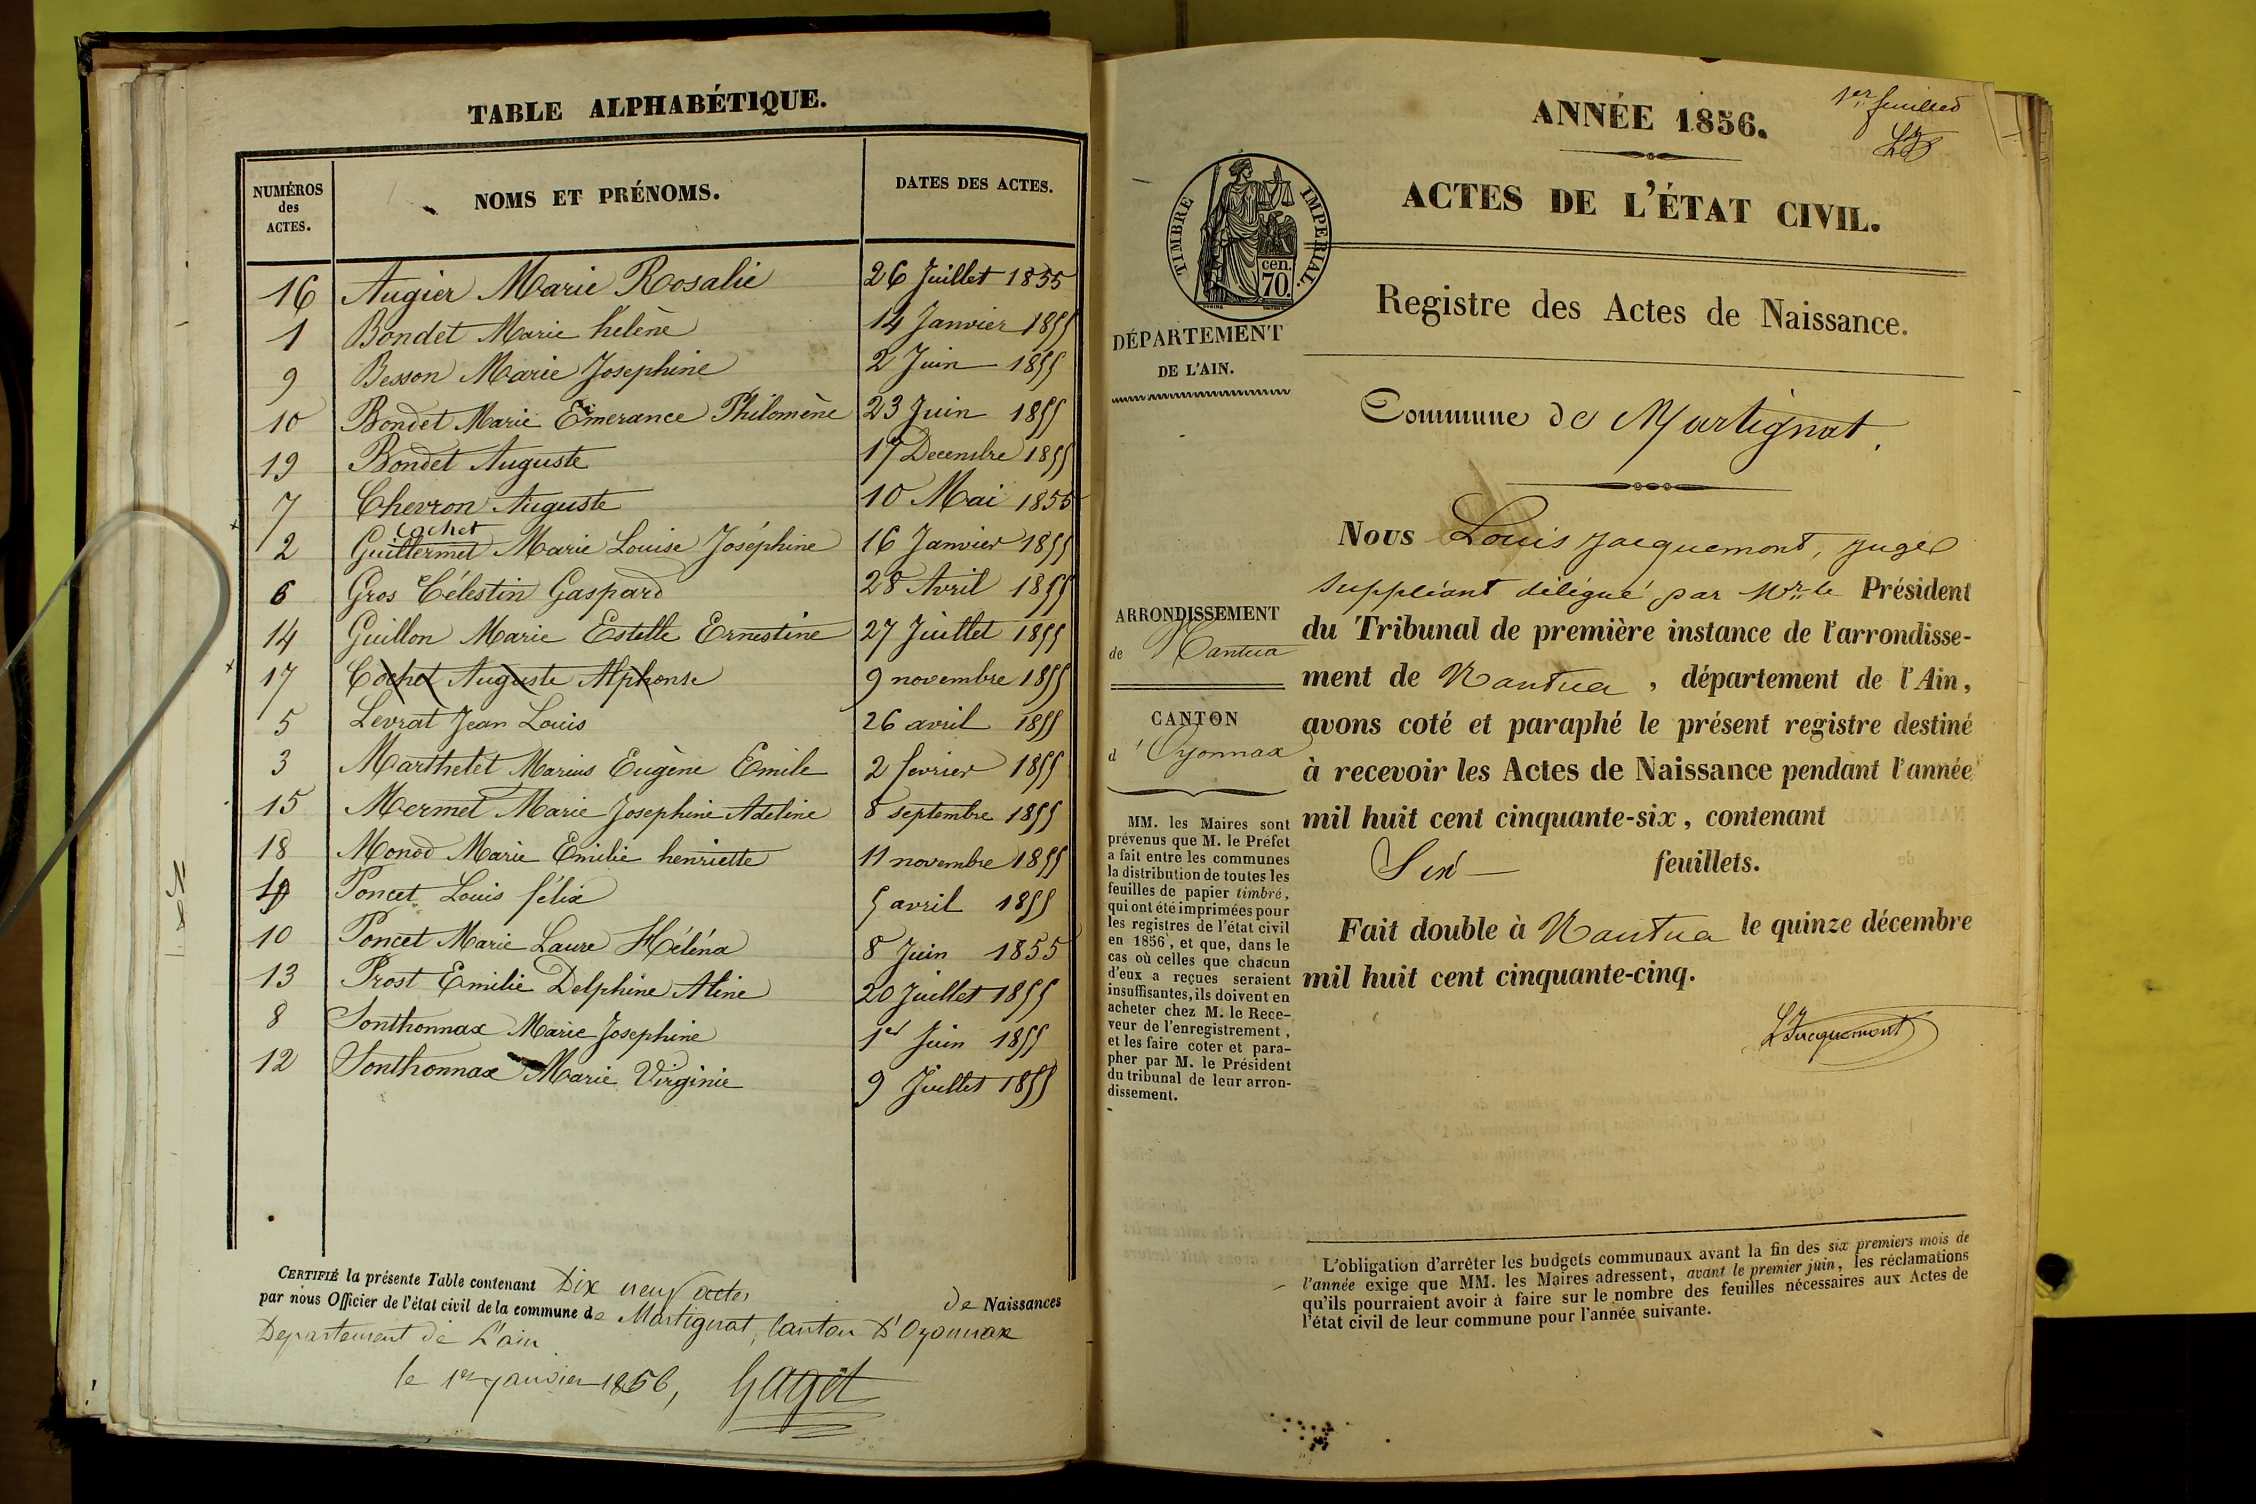 TABLE ALPHABÉTIQUE.
NUMÉROS des ACTES. NOMS ET PRÉNOMS. DATES DES ACTES.
16 Augier Marie Rosalie 26 Juillet 1855
1 Bondet Marie helène 14 Janvier 1855
9 Besson Marie Josephine 2 Juin 1855
10 Bondet Marie Emerance Philomène 23 Juin 1855
19 Bondet Auguste 17 Decembre 1855
7 Chevron Auguste 10 Mai 1855
Cochet
2 Guillermet Marie Louise Joséphine 16 Janvier 1855
6 Gros Célestin Gaspard 28 Avril 1855
14 Guillon Marie Estelle Ernestine 27 Juillet 1855
17 Cochet Auguste Alphonse 9 novembre 1855
5 Levrat Jean Louis 26 avril 1855
3 Marthelet Marius Eugène Emile 2 fevrier 1855
15 Mermet Marie Josephine Adeline 8 septembre 1855
18 Monod Marie Emilie henriette 11 novembre 1855
Poncet Louis félix 5 avril 1855
10 Poncet Marie Laure Héléna 8 Juin 1855
13 Prost Emilie Delphine Aline 20 Juillet 1855
8 Sonthonnax Marie Josephine 1er Juin 1855
12 Sonthonnax Marie Virginie 9 Juillet 1855
CERTIFIÉ la présente Table contenant Dix neuf actes de Naissances
par nous Officier de l'état civil de la commune de Martignat, Canton D'Oyonnax
Departement de L'ain
le 1er janvier 1856, Gagot
1er feuillet
ANNÉE 1856.
ACTES DE L'ÉTAT CIVIL.
TIMBRE IMPERIAL.
cen. 70.
Registre des Actes de Naissance.
DÉPARTEMENT
DE L'AIN.
Commune de Martignat.
ARRONDISSEMENT
de Nantua
CANTON
d'Oyonnax
MM. les Maires sont
prévenus que M. le Préfet
a fait entre les communes
la distribution de toutes les
feuilles de papier timbré,
qui ont été imprimées pour
les registres de l'état civil
en 1856, et que, dans le
cas où celles que chacun
d'eux a reçues seraient
insuffisantes, ils doivent en
acheter chez M. le Rece-
veur de l'enregistrement,
et les faire coter et para-
pher par M. le Président
du tribunal de leur arron-
dissement.
Nous Louis Jacquemont, juge
suppléant délégué par Mr le Président
du Tribunal de première instance de l'arrondisse-
ment de Nantua, département de l'Ain,
avons coté et paraphé le présent registre destiné
à recevoir les Actes de Naissance pendant l'année
mil huit cent cinquante-six, contenant
Six feuillets.
Fait double à Nantua le quinze décembre
mil huit cent cinquante-cinq.
L Jacquemont
L'obligation d'arrêter les budgets communaux avant la fin des six premiers mois de
l'année exige que MM. les Maires adressent, avant le premier juin, les réclamations
qu'ils pourraient avoir à faire sur le nombre des feuilles nécessaires aux Actes de
l'état civil de leur commune pour l'année suivante.